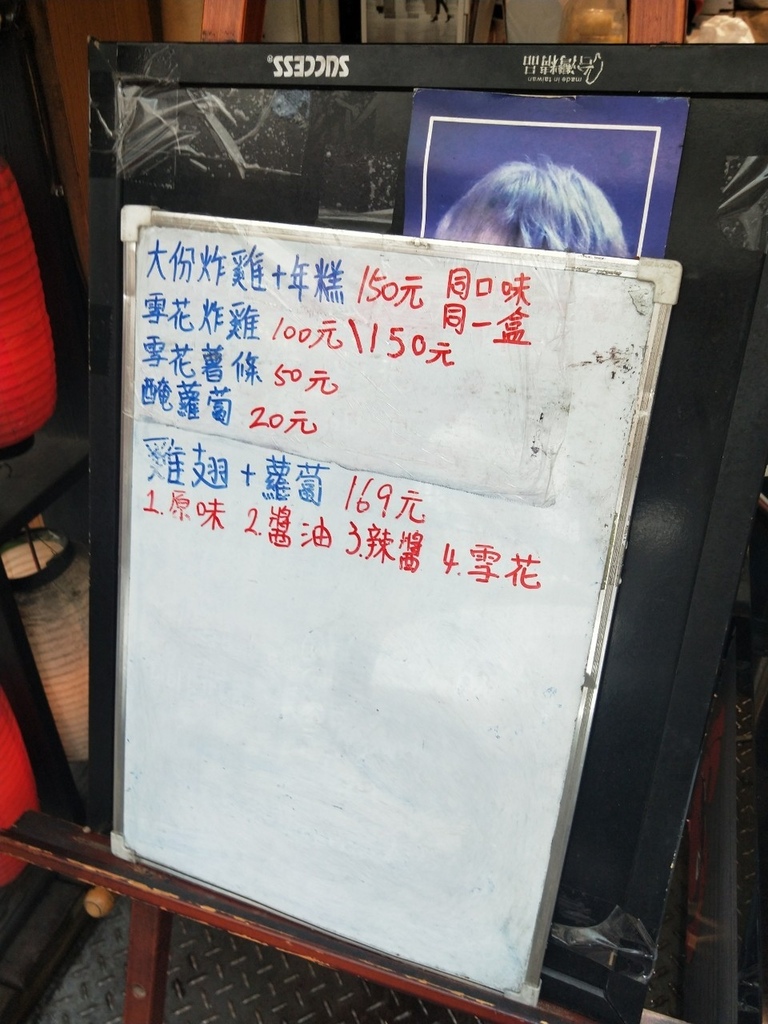 SUCCESS®
台灣精品
made in taiwan
大份炸雞+年糕 150元 同口味
同一盒
雪花炸雞 100元\150元
雪花薯條 50元
醃蘿蔔 20元
雞翅+蘿蔔 169元
1.原味 2.醬油 3.辣醬 4.雪花